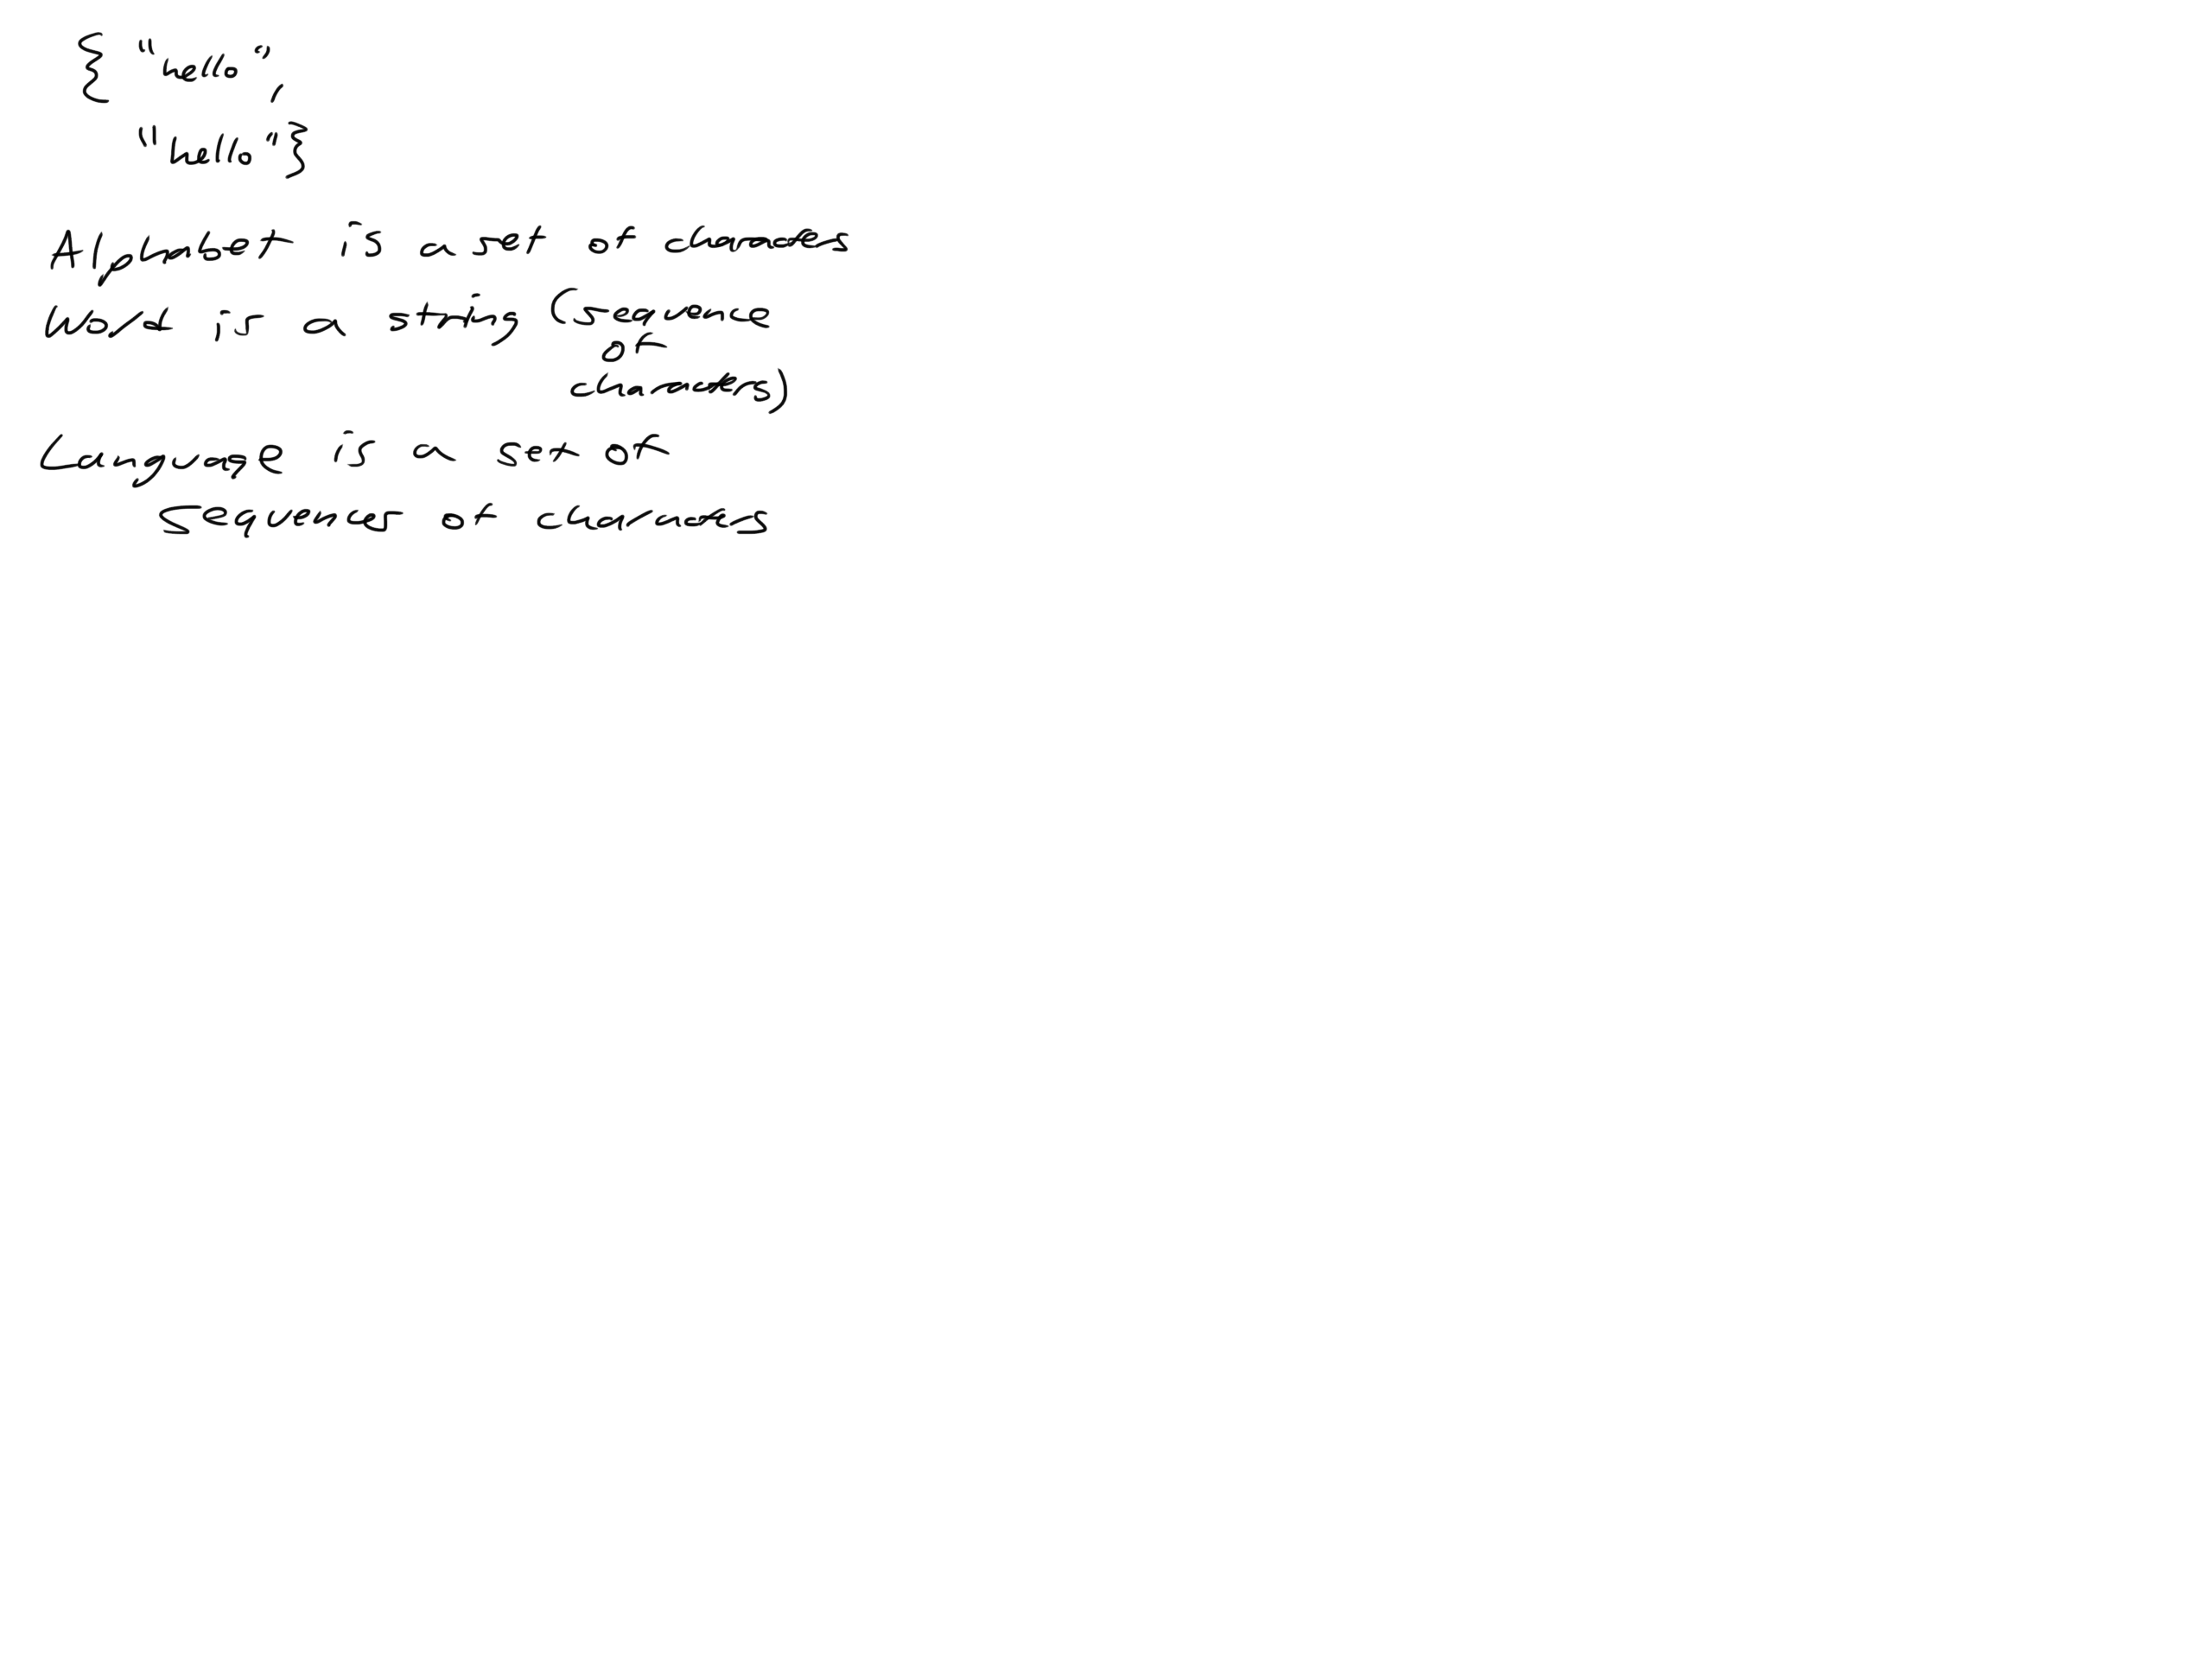 { "hello",
"hello"}
Alphabet is a set of characters
Word is a string (sequence
of
characters)
Language is a set of
sequences of characters